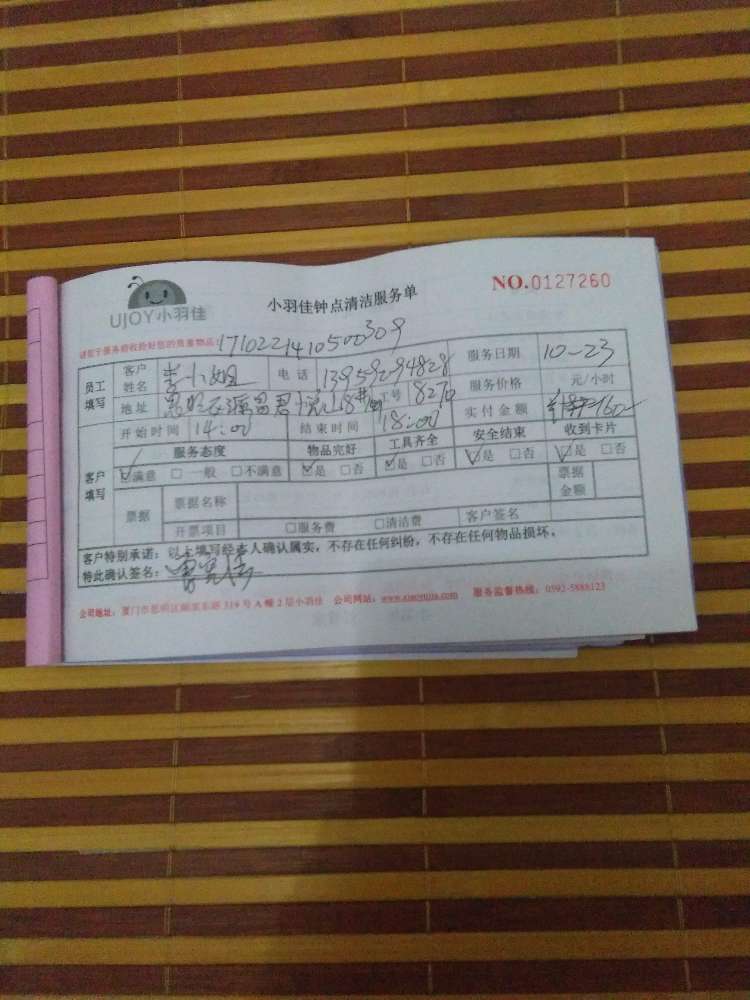 UJOY小羽佳
小羽佳钟点清洁服务单
NO.0127260
请您于服务前收拾好您的贵重物品!
171022141050030​9
员工填写 客户姓名 李小姐 电话 13959294828 服务日期 10-23
地址 18 工号 8270 服务价格 元/小时
开始时间 14:00 结束时间 18:00 实付金额 160
客户填写 服务态度 物品完好 工具齐全 安全结束 收到卡片
☑满意 □一般 □不满意 ☑是 □否 ☑是 □否 ☑是 □否 ☑是 □否
票据 票据名称 票据金额
开票项目 □服务费 □清洁费 客户签名
客户特别承诺:以上填写经本人确认属实,不存在任何纠纷,不存在任何物品损坏。
特此确认签名:
公司地址:厦门市思明区 314号A幢2层小羽佳 公司网站:www.xiaoyujia.com 服务监督热线:0592-5888123